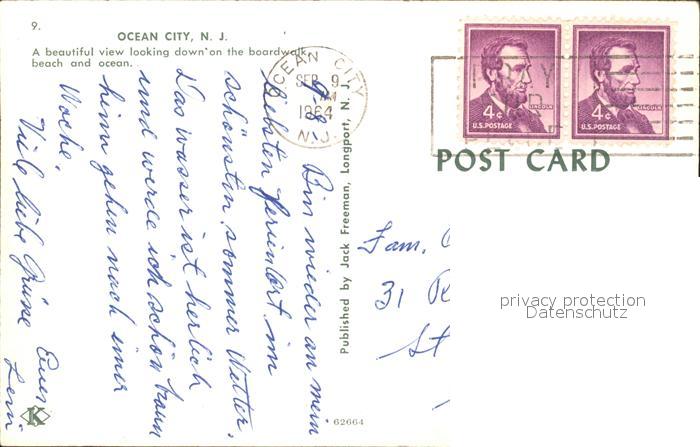 9.
OCEAN CITY, N. J.
A beautiful view looking down on the boardwalk,
beach and ocean.
OCEAN CITY
SEP 9
AM
1964
N.J.
4¢ LINCOLN
U.S. POSTAGE
4¢ LINCOLN
U.S. POSTAGE
POST CARD
Bin wieder an mein
liebsten Ferienort im
schönsten sommer Wetter.
Das wasser ist herlich
und werde ich schön braun
heim gehen nach einer
Woche.
Viele liebe Grüne Euer
Published by Jack Freeman, Longport, N. J.
Fam.
31
St
privacy protection
Datenschutz
K
62664